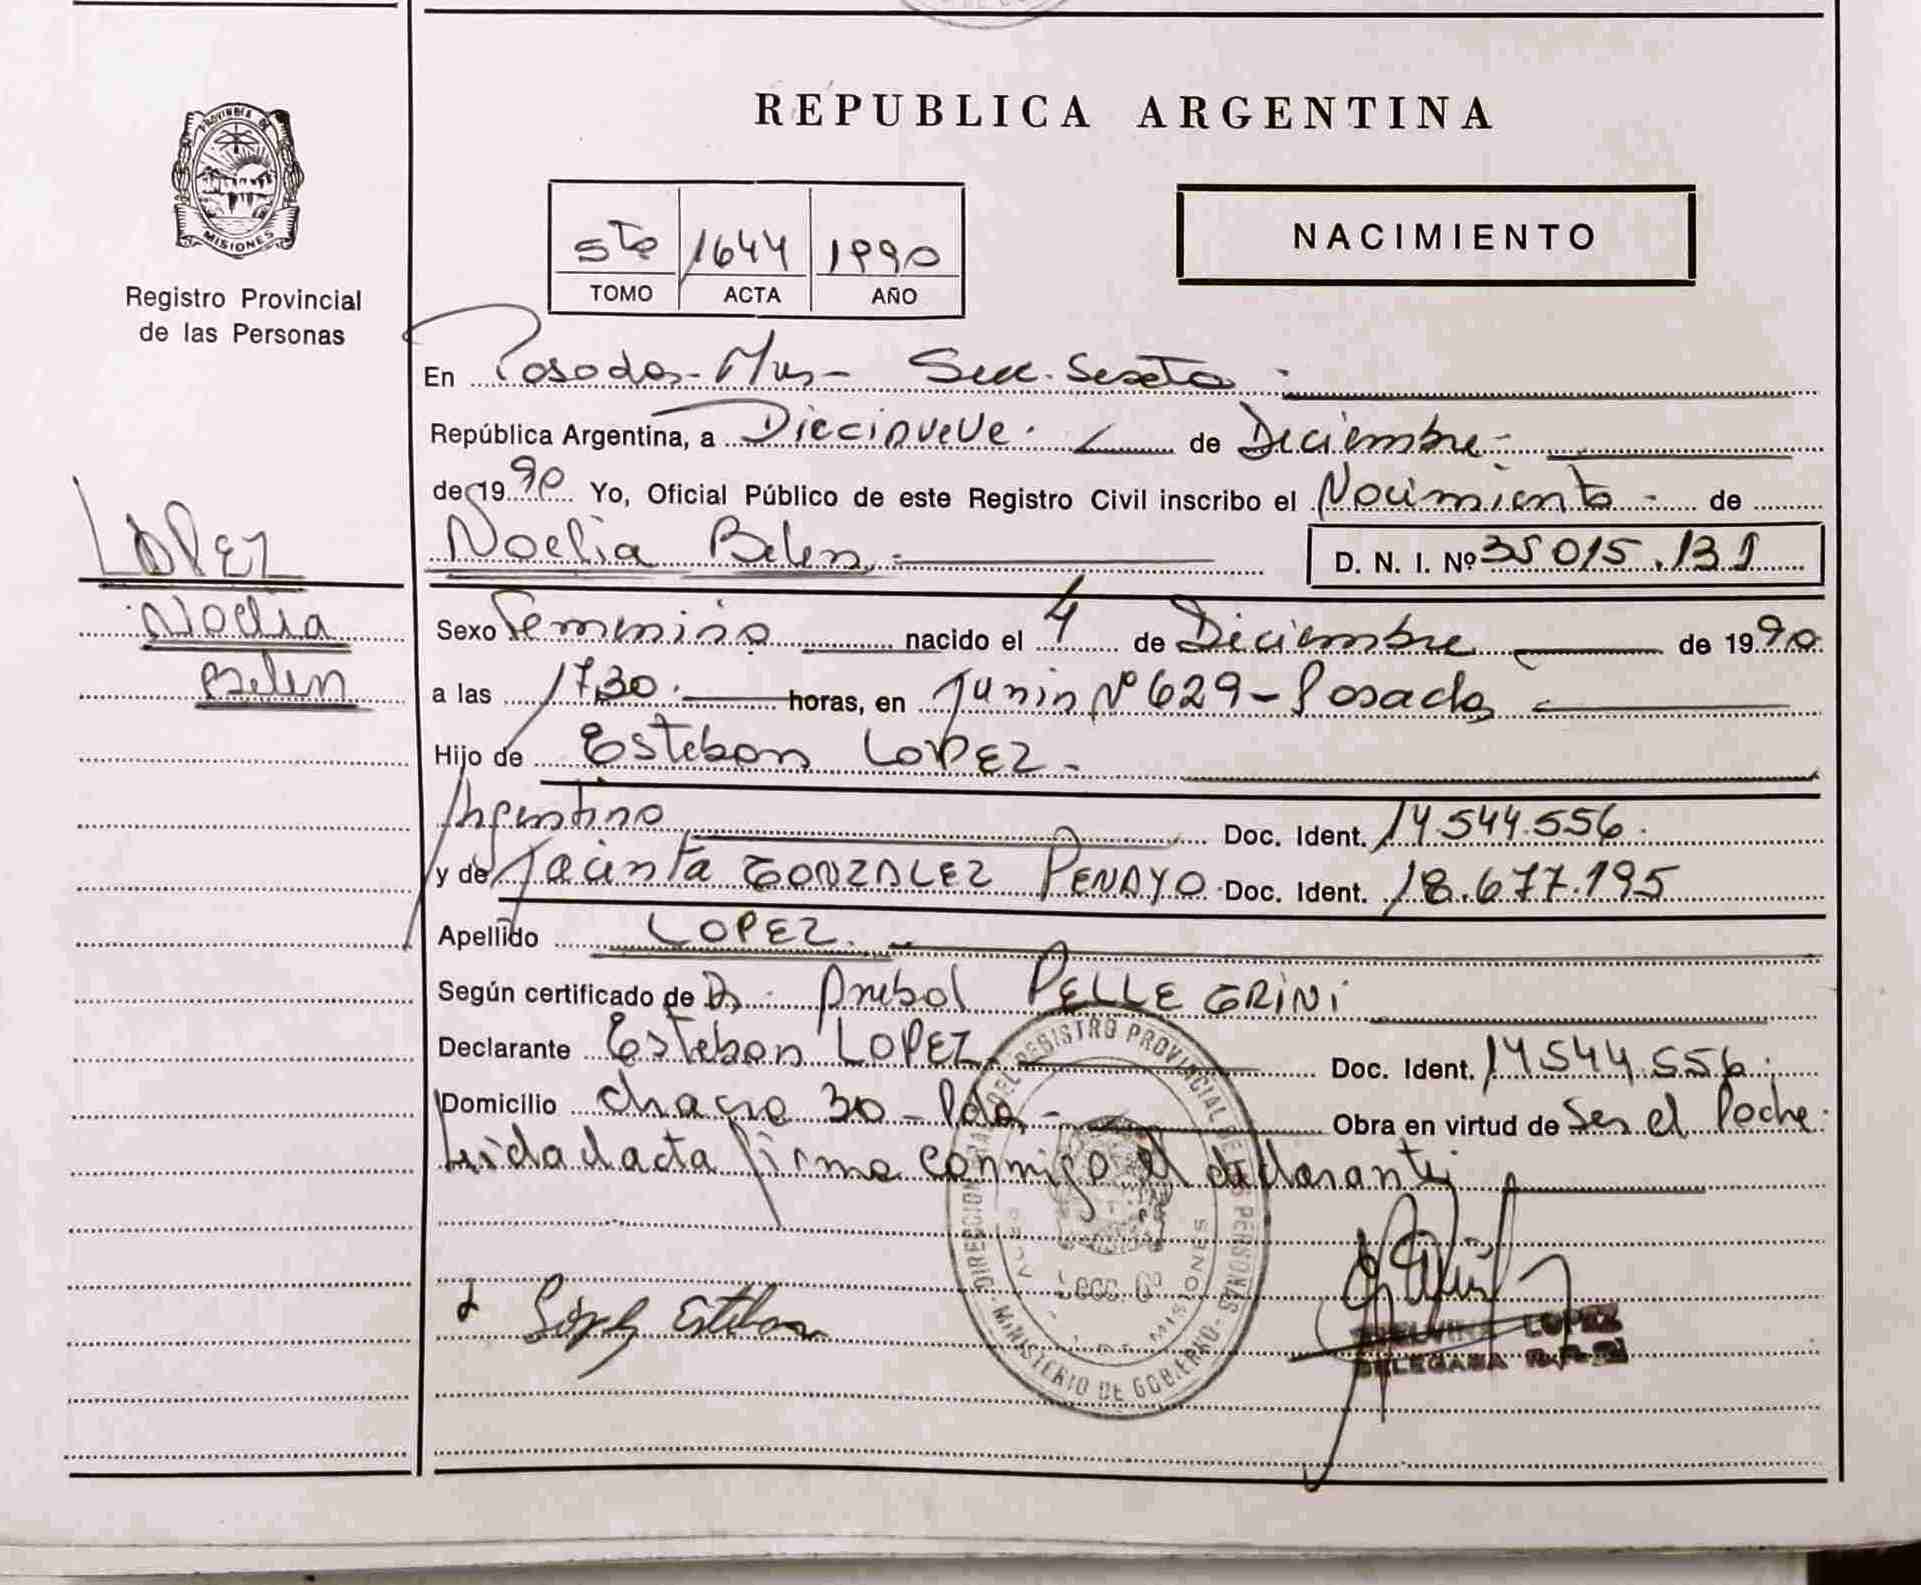 REPUBLICA ARGENTINA
PROVINCIA DE
MISIONES
Registro Provincial
de las Personas
5to 1644 1990
TOMO ACTA AÑO
NACIMIENTO
En Posadas - Mnes - Secc. Sexta
República Argentina, a Diecinueve de Diciembre
de 1990 Yo, Oficial Público de este Registro Civil inscribo el Nacimiento de
Noelia Belen D. N. I. Nº 35 015.131
LOPEZ
Noelia
Belen
Sexo Femenino nacido el 4 de Diciembre de 1990
a las 17,30 horas, en Junin Nº 629 - Posadas
Hijo de Esteban LOPEZ
Argentino Doc. Ident. 14.544.556
y de Jacinta GONZALEZ PENAYO Doc. Ident. 18.677.195
Apellido LOPEZ
Según certificado de Dr. Anibal PELLEGRINI
Declarante Esteban LOPEZ Doc. Ident. 14.544.556
Domicilio chacra 30 - Pdas - Obra en virtud de Ser el Padre
Leida el acta firma conmigo el declarante
DIRECCION GRAL DEL REGISTRO PROVINCIAL DE LAS PERSONAS - MINISTERIO DE GOBIERNO
MISIONES
López Esteban
LOPEZ
DELEGADA